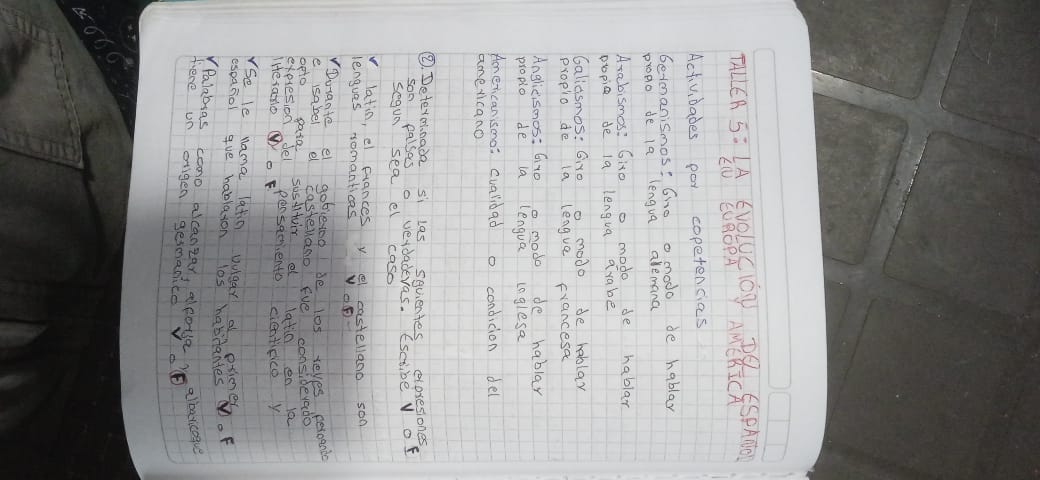 TALLER 5: LA EVOLUCIÓN DEL ESPAÑOL
EN EUROPA Y AMERICA
Actividades por copetencias
Germanismos: Giro o modo de hablar
propio de la lengua alemana
Arabismos: Giro o modo de hablar
propia de la lengua arabe
Galicismos: Giro o modo de hablar
propio de la lengua francesa
Anglicismos: Giro o modo de hablar
propio de la lengua inglesa
Americanismo: cualidad o condicion del
americano
② Determinada si las siguientes expresiones
son falsas o verdaderas. Escribe V o F
segun sea el caso
✓ latin, el frances y el castellano son
lenguas romanticas V o F
✓ Durante el gobierno de los reyes fernando
e isabel el castellano fue considerado
apto para sustituir el latin en la
expresion del pensamiento cientifico y
literario V o F
✓ Se le llama latin vulgar al primer
español que hablaron los habitantes V o F
✓ Palabras como alcanzar, alforja y albaricoque
tiene un origen germanico V o F